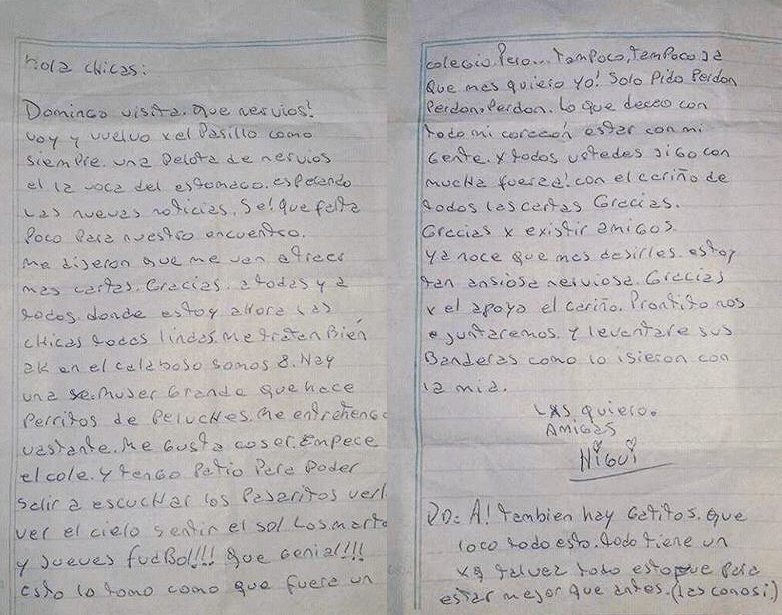 hola chicas:
Domingo visita. Que nervios!
voy y vuelvo x el pasillo como
siempre. una pelota de nervios
el la voca del estomago. esperando
las nuevas noticias. Se! que falta
poco para nuestro encuentro.
me dijeron que me van a traer
mas cartas. Gracias. a todas y a
todos. donde estoy ahora las
chicas todas lindas. me tratan Bien
ak en el calaboso somos 8. Hay
una mujer Grande que hace
perritos de peluches. Me entretengo
vastante. Me Gusta coser. Empece
el cole. y tengo patio para poder
salir a escuchar los pajaritos ver
ver el cielo sentir el sol Los marte
y jueves fudbol!!! que Genial!!!
esto lo tomo como que fuera un
colegio. pero... tampoco, tampoco ja
Que mas quiero yo! Solo pido perdon
perdon, perdon. Lo que deceo con
todo mi corazón estar con mi
Gente. x todos ustedes sigo con
mucha fuerza! con el cariño de
todos las cartas Gracias.
Gracias x existir amigos.
ya noce que mas desirles. estoy
tan ansiosa nerviosa. Gracias
x el apoyo el cariño. Prontito nos
ejuntaremos. y levantare sus
Banderas como lo isieron con
la mia.
Las quiero.
AMIGAS
HiGui
PD: A! tambien hay Gatitos. que
loco todo esto. todo tiene un
xq talvez todo esto fue para
estar mejor que antes. (las conosi)